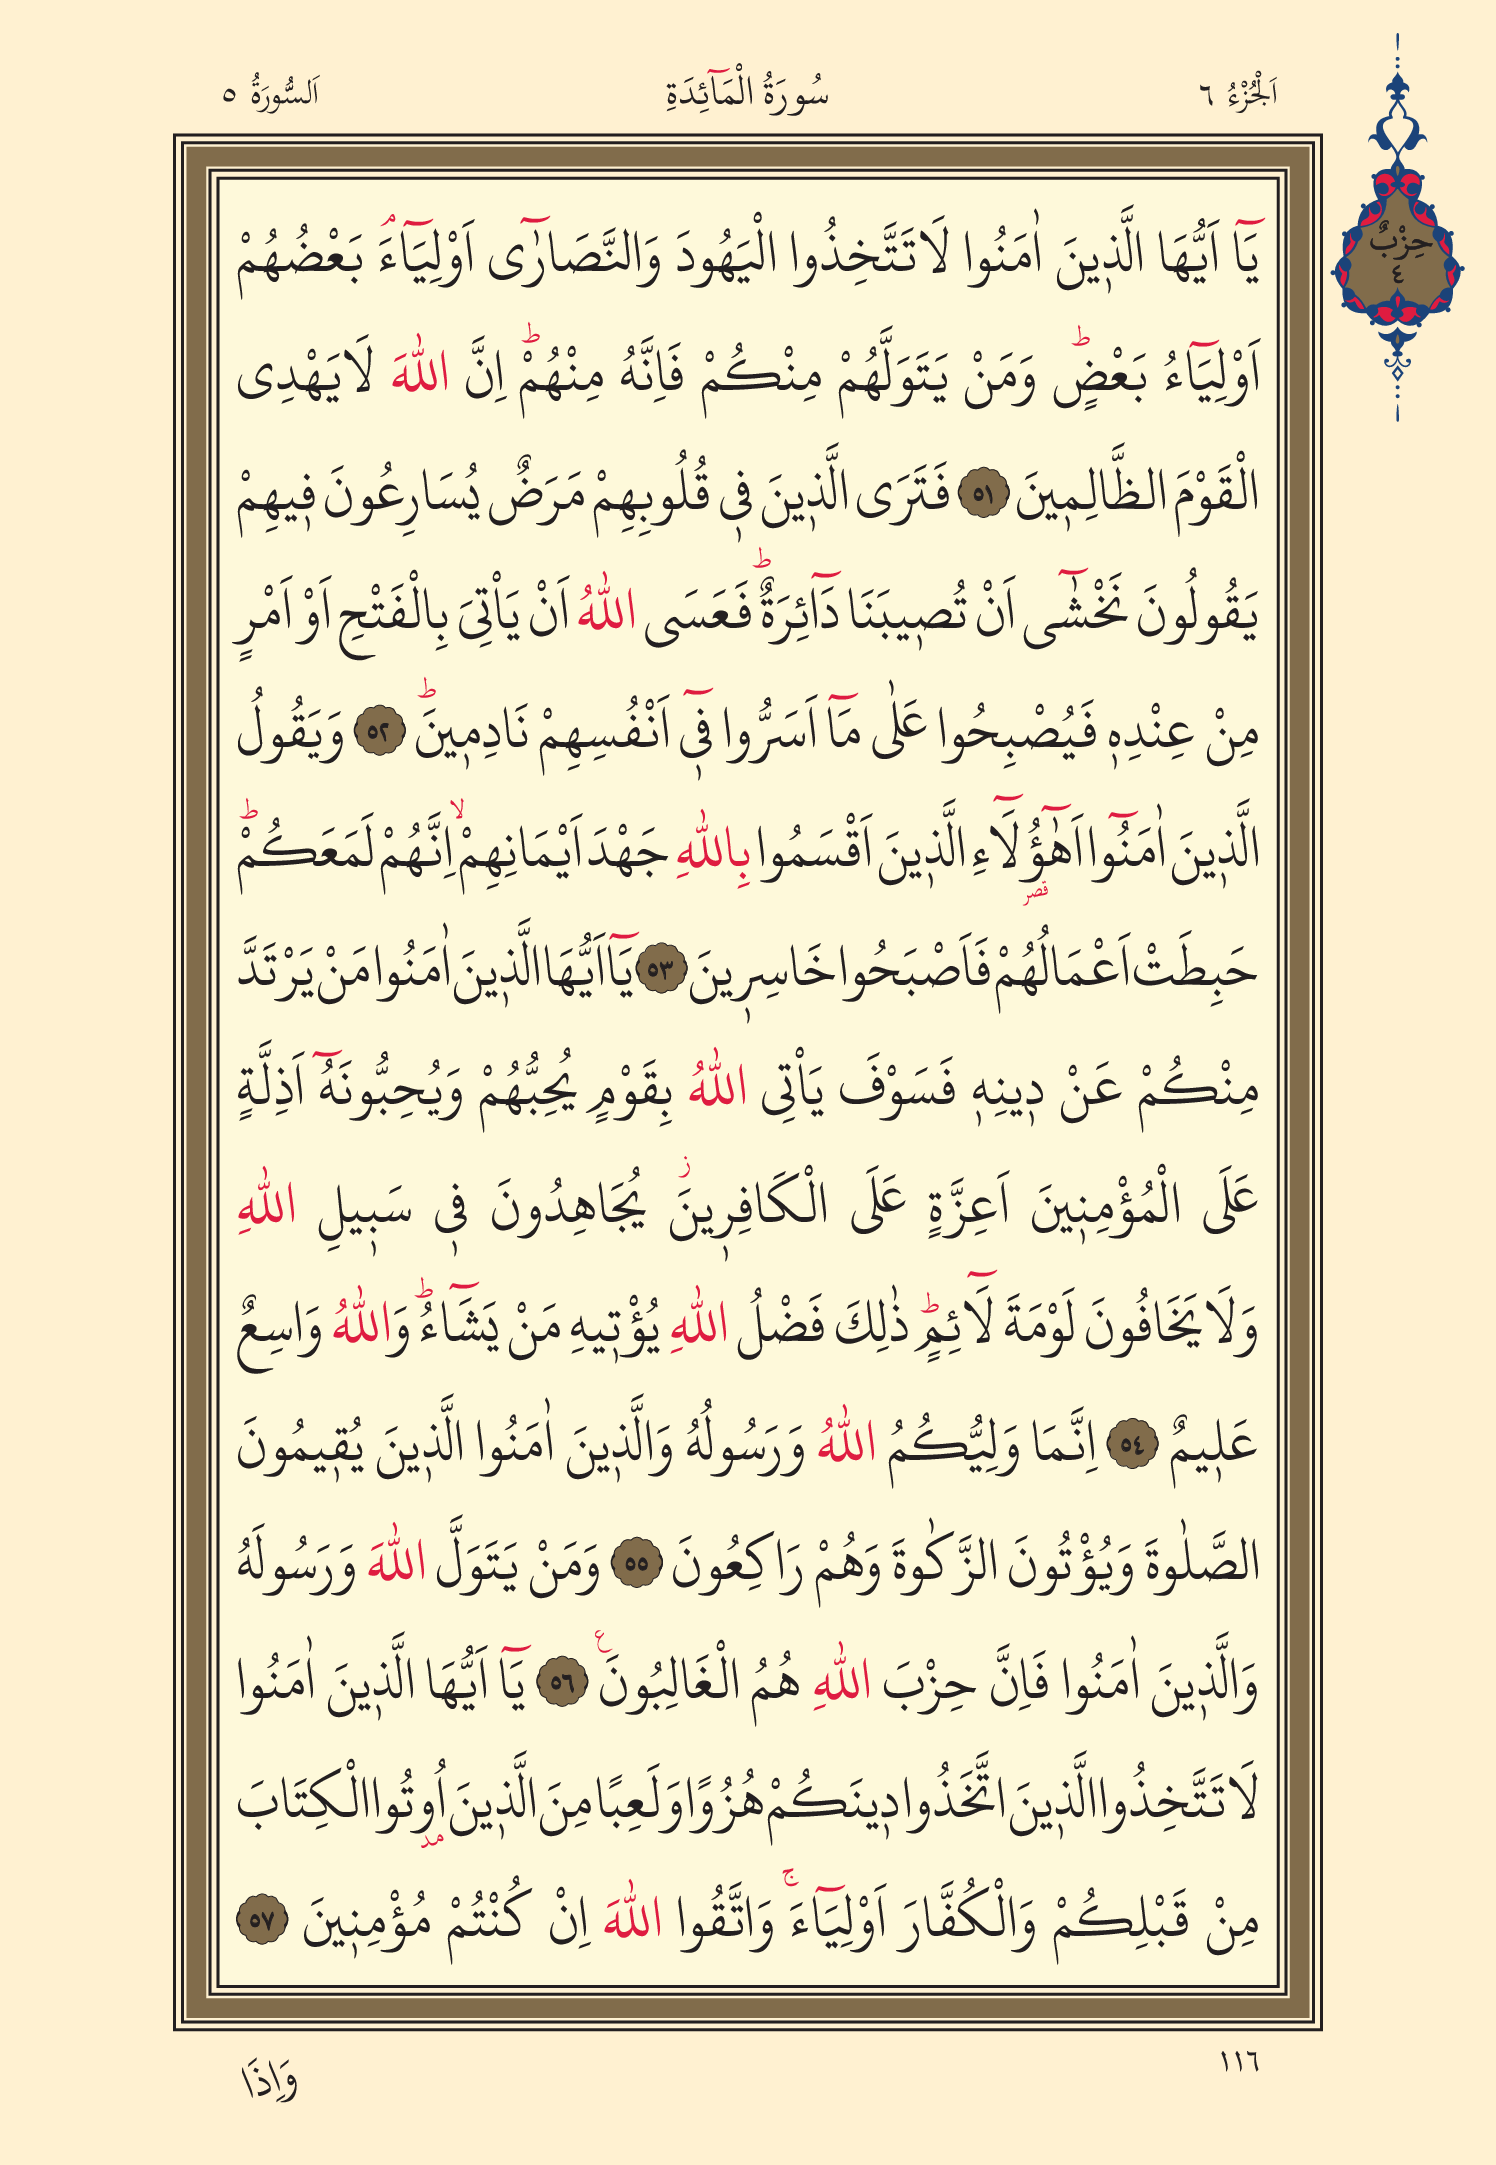 اَلْجُزْءُ ٦ سُورَةُ الْمَٓائِدَةِ اَلسُّورَةُ ٥
حِزْبٌ
٤
يَٓا اَيُّهَا الَّذ۪ينَ اٰمَنُوا لَا تَتَّخِذُوا الْيَهُودَ وَالنَّصَارٰٓى اَوْلِيَٓاءَۢ بَعْضُهُمْ
اَوْلِيَٓاءُ بَعْضٍۜ وَمَنْ يَتَوَلَّهُمْ مِنْكُمْ فَاِنَّهُ مِنْهُمْۜ اِنَّ اللّٰهَ لَا يَهْدِى
الْقَوْمَ الظَّالِم۪ينَ ﴿٥١﴾ فَتَرَى الَّذ۪ينَ ف۪ى قُلُوبِهِمْ مَرَضٌ يُسَارِعُونَ ف۪يهِمْ
يَقُولُونَ نَخْشٰٓى اَنْ تُص۪يبَنَا دَٓائِرَةٌۜ فَعَسَى اللّٰهُ اَنْ يَاْتِىَ بِالْفَتْحِ اَوْ اَمْرٍ
مِنْ عِنْدِه۪ فَيُصْبِحُوا عَلٰى مَٓا اَسَرُّوا ف۪ٓى اَنْفُسِهِمْ نَادِم۪ينَۜ ﴿٥٢﴾ وَيَقُولُ
الَّذ۪ينَ اٰمَنُٓوا اَهٰٓؤُ۬لَٓاءِ الَّذ۪ينَ اَقْسَمُوا بِاللّٰهِ جَهْدَ اَيْمَانِهِمْۙ اِنَّهُمْ لَمَعَكُمْۜ
قصر
حَبِطَتْ اَعْمَالُهُمْ فَاَصْبَحُوا خَاسِر۪ينَ ﴿٥٣﴾ يَٓا اَيُّهَا الَّذ۪ينَ اٰمَنُوا مَنْ يَرْتَدَّ
مِنْكُمْ عَنْ د۪ينِه۪ فَسَوْفَ يَاْتِى اللّٰهُ بِقَوْمٍ يُحِبُّهُمْ وَيُحِبُّونَهُٓ اَذِلَّةٍ
عَلَى الْمُؤْمِن۪ينَ اَعِزَّةٍ عَلَى الْكَافِر۪ينَۘ يُجَاهِدُونَ ف۪ى سَب۪يلِ اللّٰهِ
وَلَا يَخَافُونَ لَوْمَةَ لَٓائِمٍۜ ذٰلِكَ فَضْلُ اللّٰهِ يُؤْت۪يهِ مَنْ يَشَٓاءُۜ وَاللّٰهُ وَاسِعٌ
عَل۪يمٌ ﴿٥٤﴾ اِنَّمَا وَلِيُّكُمُ اللّٰهُ وَرَسُولُهُ وَالَّذ۪ينَ اٰمَنُوا الَّذ۪ينَ يُق۪يمُونَ
الصَّلٰوةَ وَيُؤْتُونَ الزَّكٰوةَ وَهُمْ رَاكِعُونَ ﴿٥٥﴾ وَمَنْ يَتَوَلَّ اللّٰهَ وَرَسُولَهُ
وَالَّذ۪ينَ اٰمَنُوا فَاِنَّ حِزْبَ اللّٰهِ هُمُ الْغَالِبُونَ ع ﴿٥٦﴾ يَٓا اَيُّهَا الَّذ۪ينَ اٰمَنُوا
لَا تَتَّخِذُوا الَّذ۪ينَ اتَّخَذُوا د۪ينَكُمْ هُزُوًا وَلَعِبًا مِنَ الَّذ۪ينَ اُو۫تُوا الْكِتَابَ
مِنْ قَبْلِكُمْ وَالْكُفَّارَ اَوْلِيَٓاءَۚ وَاتَّقُوا اللّٰهَ اِنْ كُنْتُمْ مُؤْمِن۪ينَ ﴿٥٧﴾
١١٦ وَاِذَا